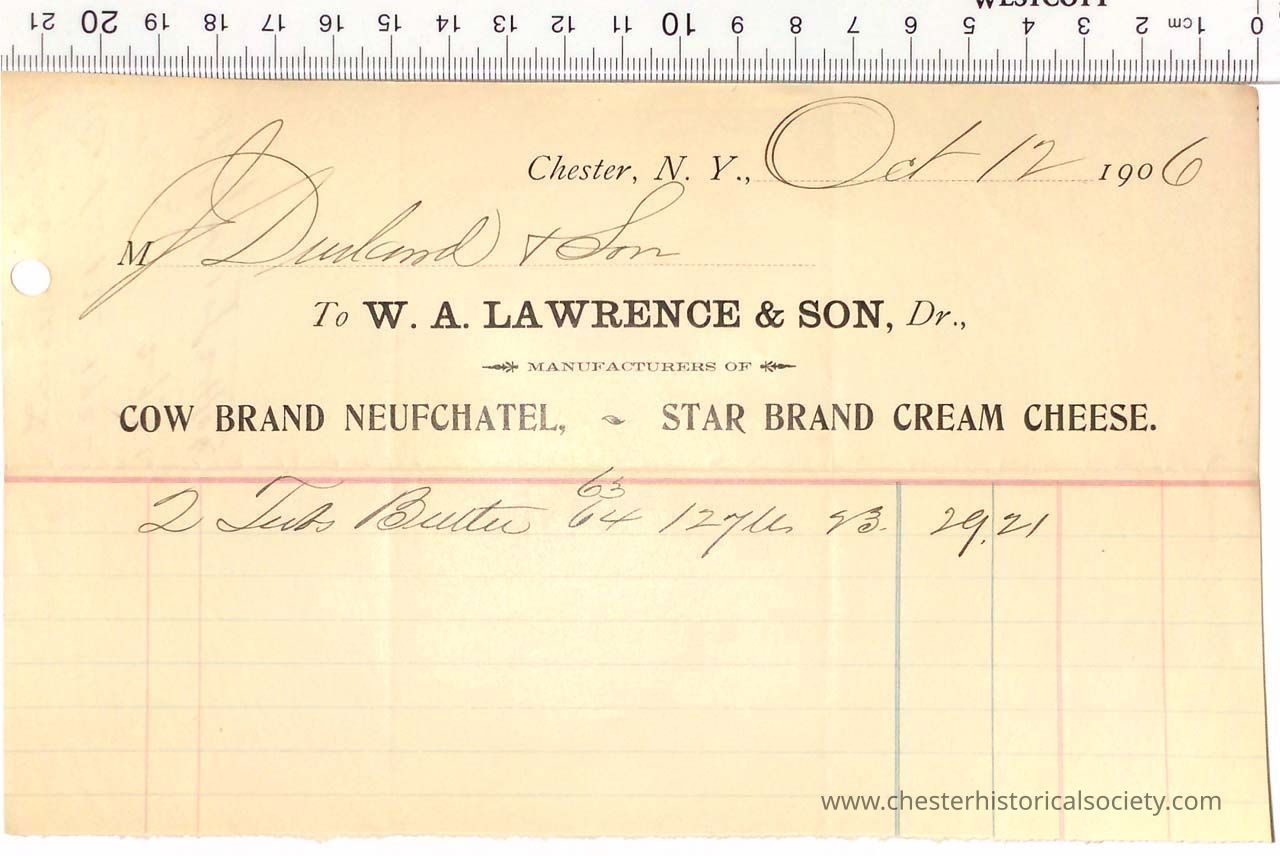 WESTCOTT
21 20 19 18 17 16 15 14 13 12 11 10 9 8 7 6 5 4 3 2 1cm 0
Chester, N. Y., Oct 12 1906
M J Durland & Son
To W. A. LAWRENCE & SON, Dr.,
MANUFACTURERS OF
COW BRAND NEUFCHATEL, STAR BRAND CREAM CHEESE.
63
2 Tubs Butter 64 127 lbs 23. 29.21
www.chesterhistoricalsociety.com